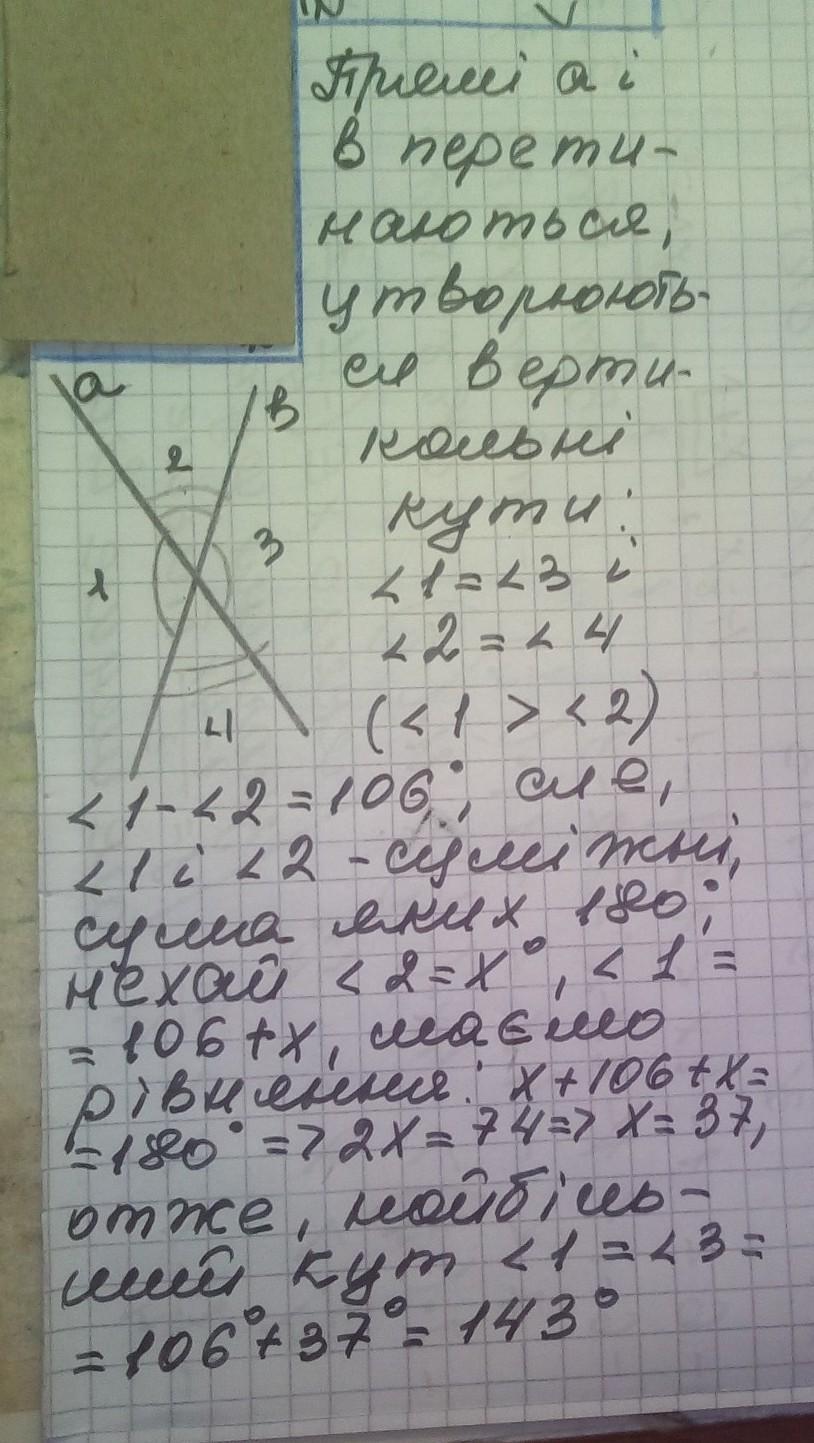 Прямі а і
в перети-
наються,
утворюють-
ся верти-
кальні
кути:
а
в
2
3
1
4
<1=<3 і
<2=<4
(<1><2)
<1-<2=106°, але,
<1 і <2 - суміжні,
сума яких 180°;
нехай <2=х°, <1=
=106+х, маємо
рівняння: х+106+х=
=180° => 2х=74=> х=37,
отже, найбіль-
ший кут <1=<3=
=106°+37°=143°